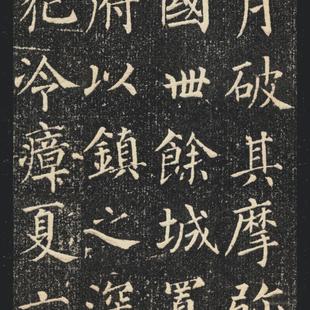 月破其摩弥
國丗餘城置
府以鎮之深
犯冷瘴夏